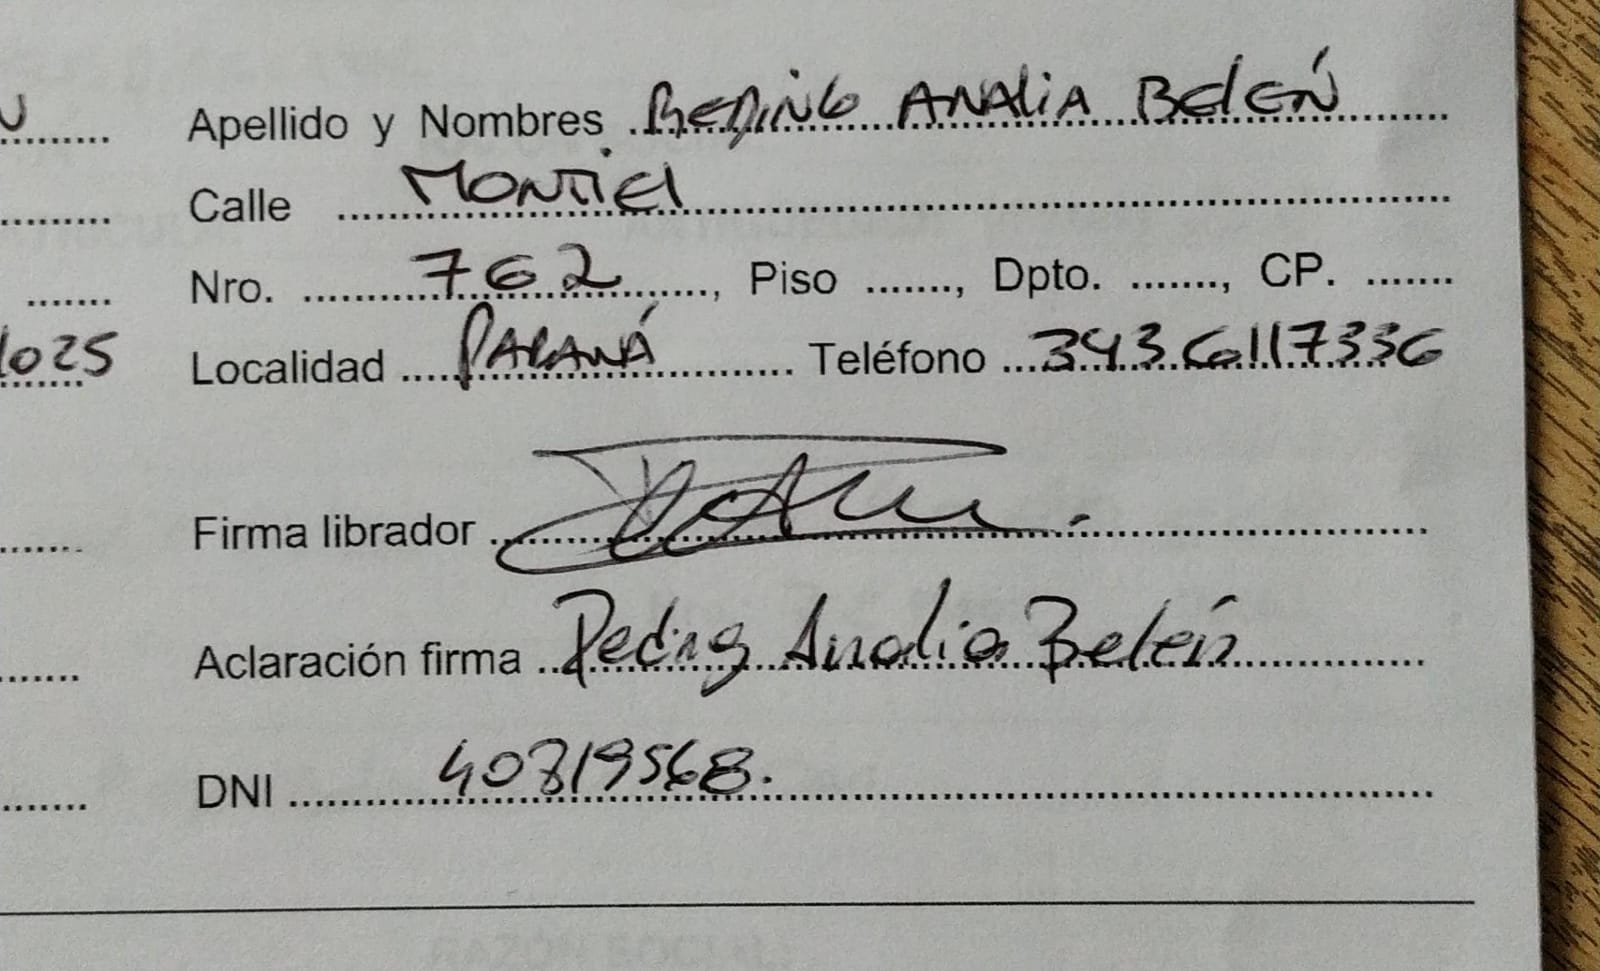 Apellido y Nombres Analia Belén
Calle Montiel
Nro. 762, Piso ......., Dpto. ......., CP. .......
1025 Localidad Paraná Teléfono 3436117336
Firma librador
Aclaración firma Analia Belén
DNI 40819568.